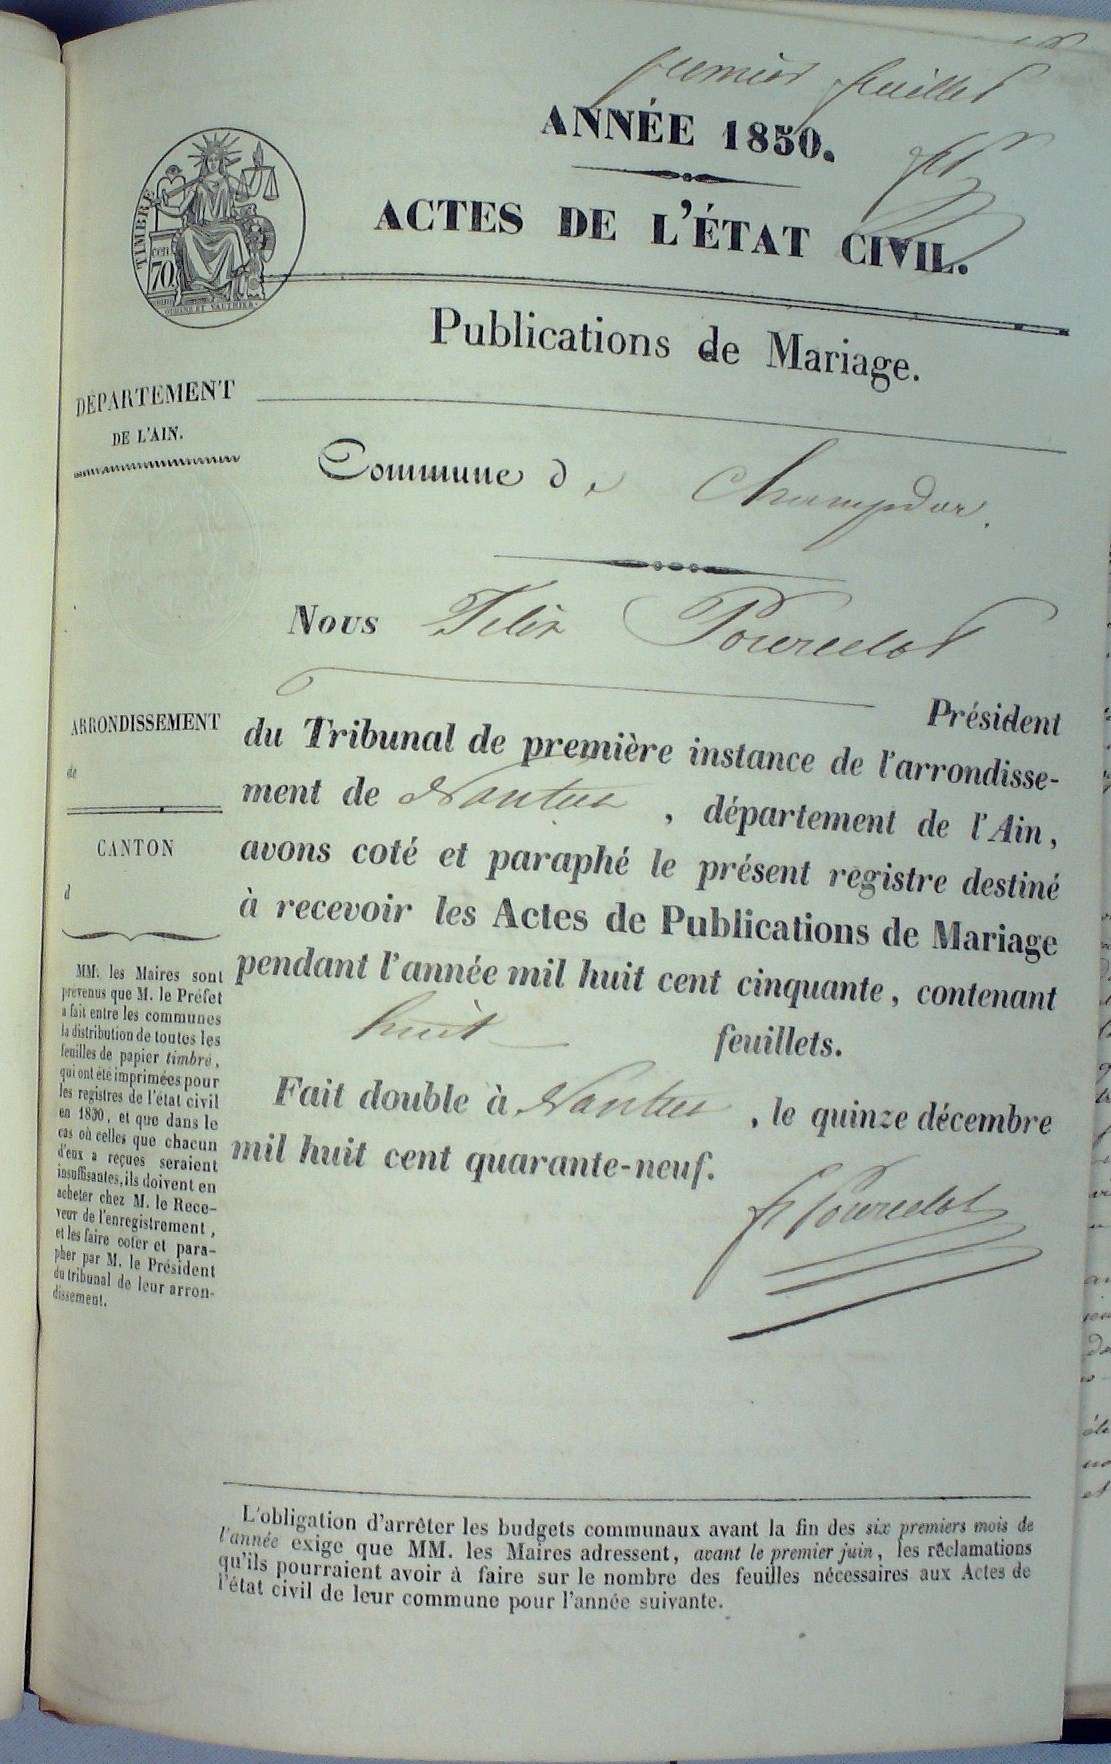 premier feuillet
ANNÉE 1850.
ACTES DE L'ÉTAT CIVIL.
TIMBRE
cen
70
Publications de Mariage.
DÉPARTEMENT
DE L'AIN.
Commune de Champdor.
Nous Félix Pourcelot
Président
ARRONDISSEMENT
de
CANTON
d
du Tribunal de première instance de l'arrondisse-
ment de Nantua, département de l'Ain,
avons coté et paraphé le présent registre destiné
à recevoir les Actes de Publications de Mariage
pendant l'année mil huit cent cinquante, contenant
huit feuillets.
Fait double à Nantua, le quinze décembre
mil huit cent quarante-neuf.
f Pourcelot
MM. les Maires sont
prévenus que M. le Préfet
a fait entre les communes
la distribution de toutes les
feuilles de papier timbré,
qui ont été imprimées pour
les registres de l'état civil
en 1850, et que dans le
cas où celles que chacun
d'eux a reçues seraient
insuffisantes, ils doivent en
acheter chez M. le Rece-
veur de l'enregistrement,
et les faire coter et para-
pher par M. le Président
du tribunal de leur arron-
dissement.
L'obligation d'arrêter les budgets communaux avant la fin des six premiers mois de
l'année exige que MM. les Maires adressent, avant le premier juin, les réclamations
qu'ils pourraient avoir à faire sur le nombre des feuilles nécessaires aux Actes de
l'état civil de leur commune pour l'année suivante.